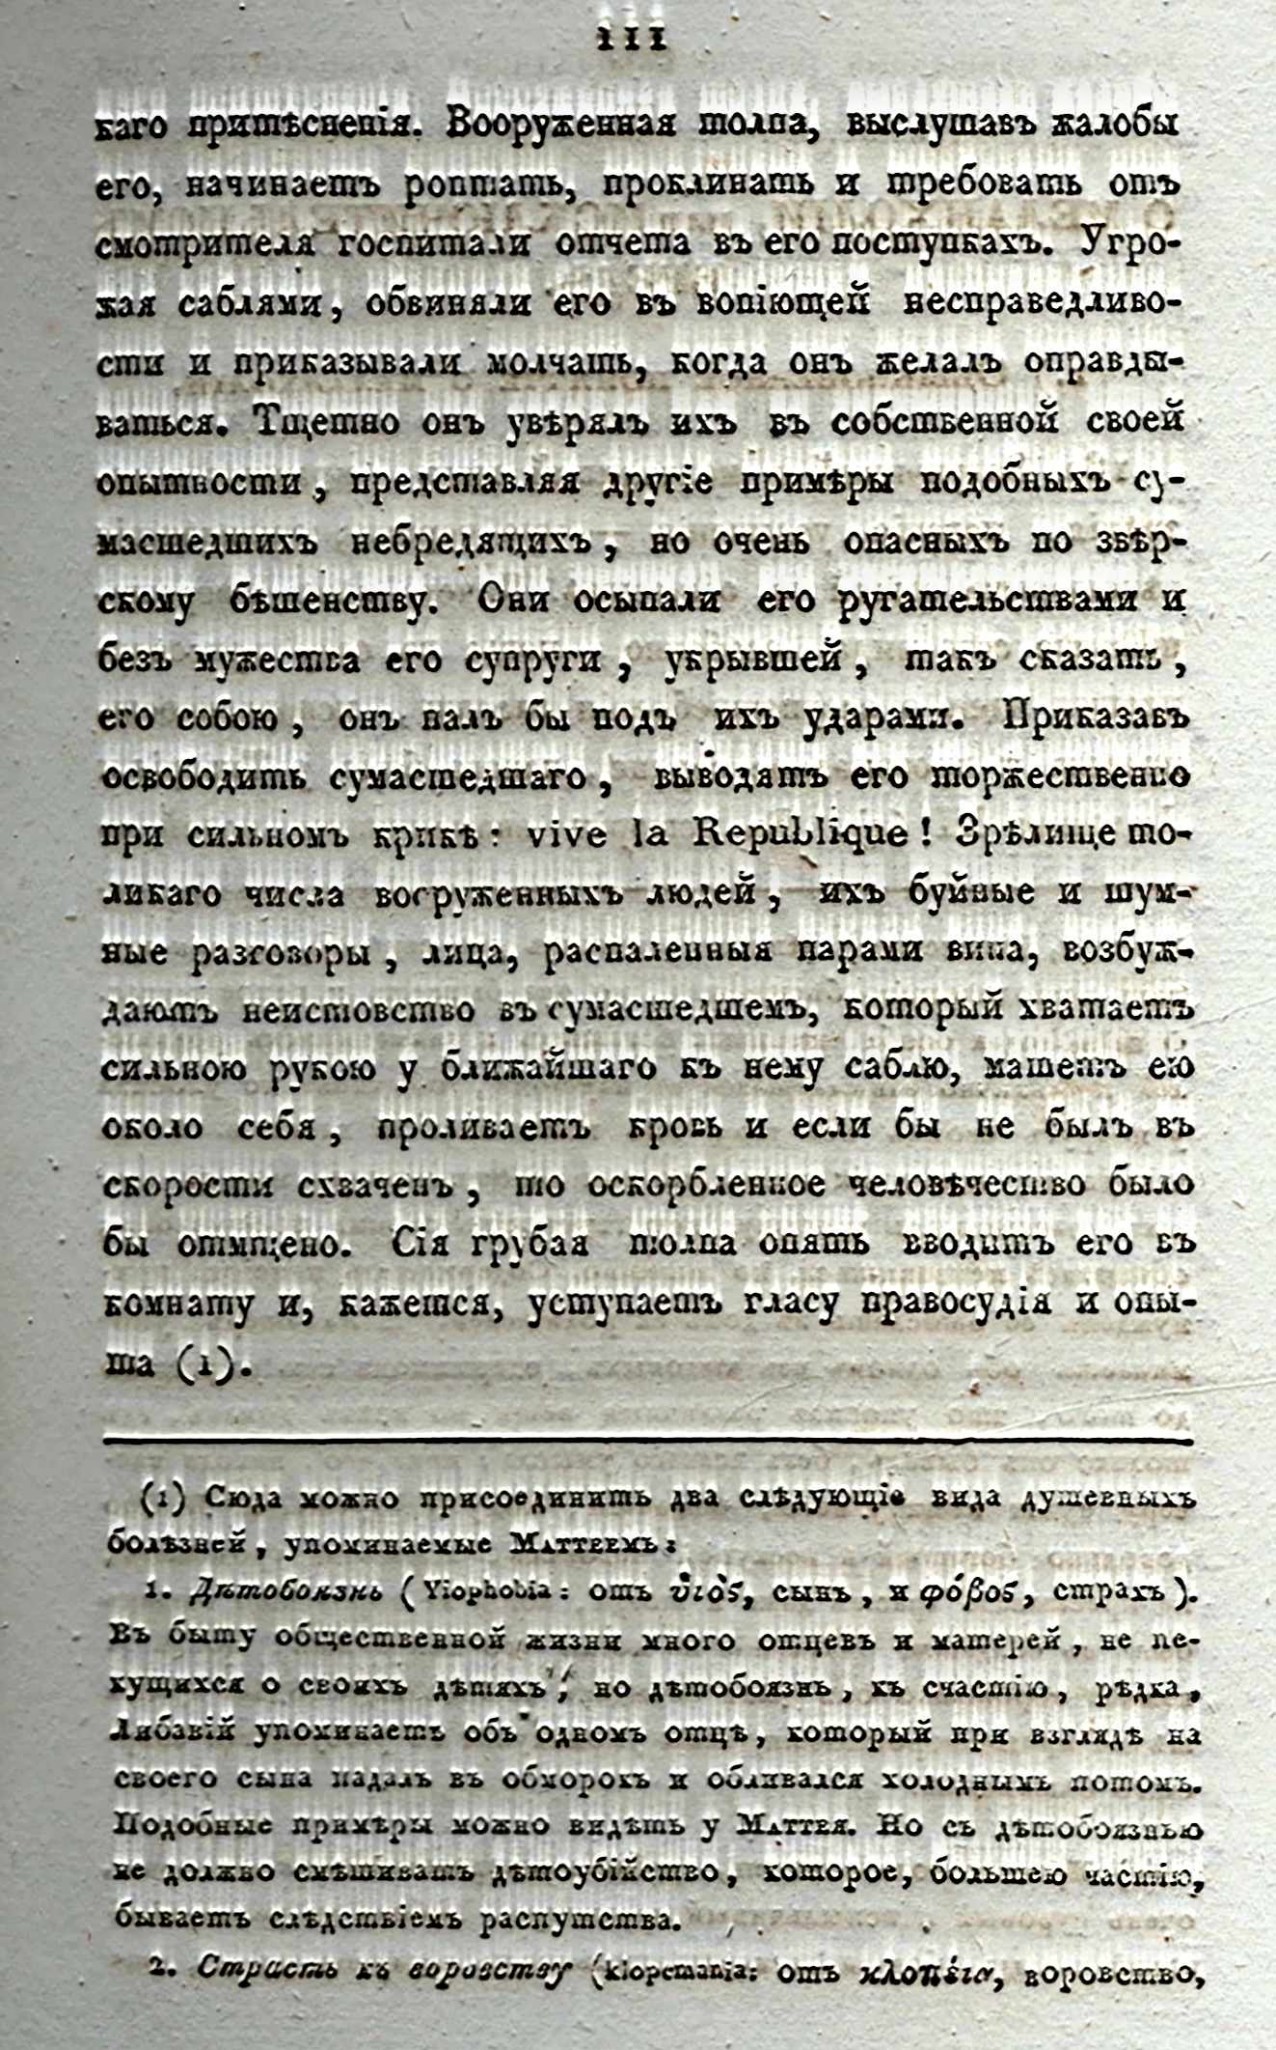 111
каго притѣсненія. Вооруженная толпа, выслушавъ жалобы
его, начинаетъ роптать, проклинать и требовать отъ
смотрителя госпитали отчета въ его поступкахъ. Угро-
жая саблями, обвиняли его въ вопіющей несправедливо-
сти и приказывали молчать, когда онъ желалъ оправды-
ваться. Тщетно онъ увѣрялъ ихъ въ собственной своей
опытности, представляя другіе примѣры подобныхъ су-
масшедшихъ небредящихъ, но очень опасныхъ по звѣр-
скому бѣшенству. Они осыпали его ругательствами и
безъ мужества его супруги, укрывшей, такъ сказать,
его собою, онъ палъ бы подъ ихъ ударами. Приказавъ
освободить сумасшедшаго, выводятъ его торжественно
при сильномъ крикѣ: vive la Republique! Зрѣлище то-
ликаго числа вооруженныхъ людей, ихъ буйные и шум-
ные разговоры, лица, распаленныя парами вина, возбуж-
даютъ неистовство въ сумасшедшемъ, который хватаетъ
сильною рукою у ближайшаго къ нему саблю, машетъ ею
около себя, проливаетъ кровь и если бы не былъ въ
скорости схваченъ, то оскорбленное человѣчество было
бы отмщено. Сія грубая толпа опять вводитъ его въ
комнату и, кажется, уступаетъ гласу правосудія и опы-
та (1).
(1) Сюда можно присоединить два слѣдующіе вида душевныхъ
болѣзней, упоминаемые Маттеемъ:
1. Дѣтобоязнь (Yiophobia: отъ ὑιὸς, сынъ, и φόβος, страхъ).
Въ быту общественной жизни много отцевъ и матерей, не пе-
кущихся о своихъ дѣтяхъ, но дѣтобоязнь, къ счастію, рѣдка.
Либавій упоминаетъ объ одномъ отцѣ, который при взглядѣ на
своего сына падалъ въ обморокъ и обливался холоднымъ потомъ.
Подобные примѣры можно видѣть у Маттея. Но съ дѣтобоязнью
не должно смѣшивать дѣтоубійство, которое, большею частію,
бываетъ слѣдствіемъ распутства.
2. Страсть къ воровству (klopemania: отъ κλοπέια, воровство,